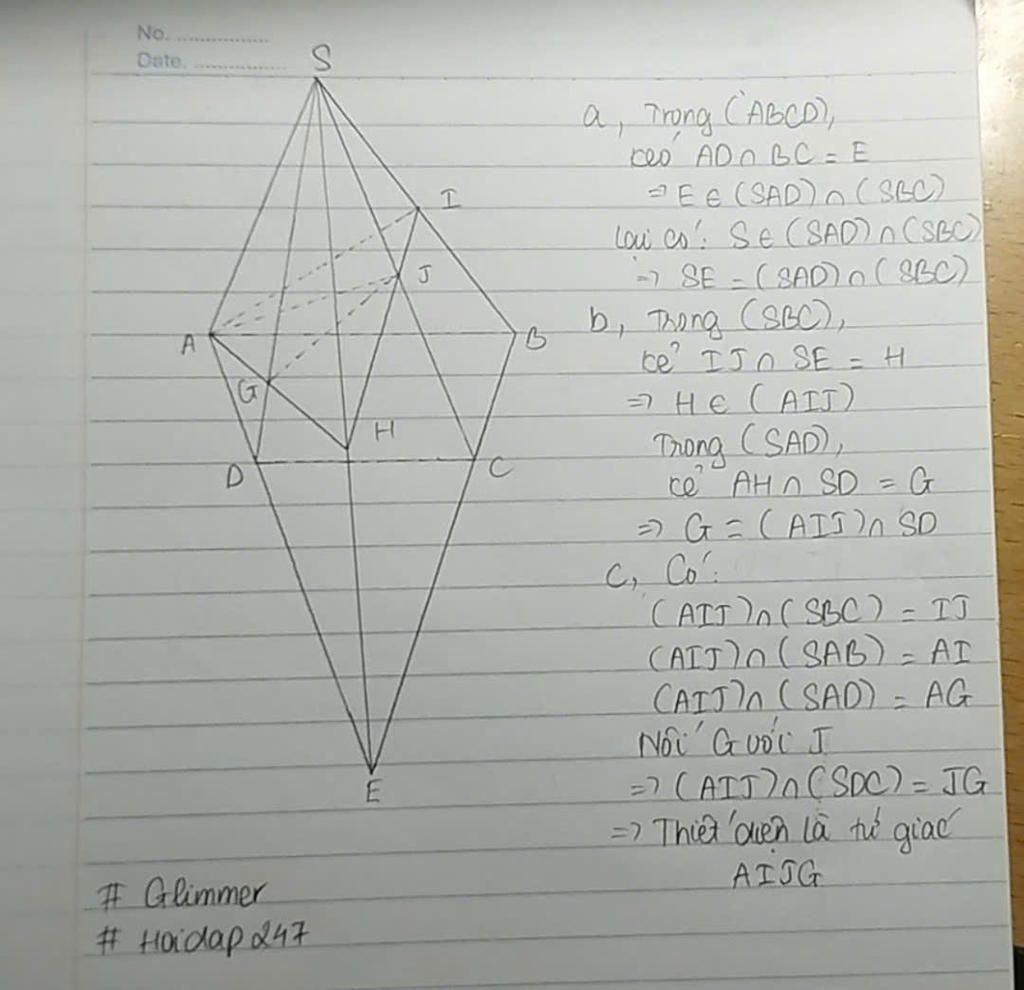 No. ..................
Date. ..................
S
I
J
A
B
G
H
D
C
E
a, Trong (ABCD),
kéo AD ∩ BC = E
⇒ E ∈ (SAD) ∩ (SBC)
Lại có: S ∈ (SAD) ∩ (SBC)
⇒ SE = (SAD) ∩ (SBC)
b, Trong (SBC),
kẻ IJ ∩ SE = H
⇒ H ∈ (AIJ)
Trong (SAD),
kẻ AH ∩ SD = G
⇒ G = (AIJ) ∩ SD
c, Có:
(AIJ) ∩ (SBC) = IJ
(AIJ) ∩ (SAB) = AI
(AIJ) ∩ (SAD) = AG
Nối G với J
⇒ (AIJ) ∩ (SDC) = JG
⇒ Thiết diện là tứ giác
AIJG
# Glimmer
# Hoidap247